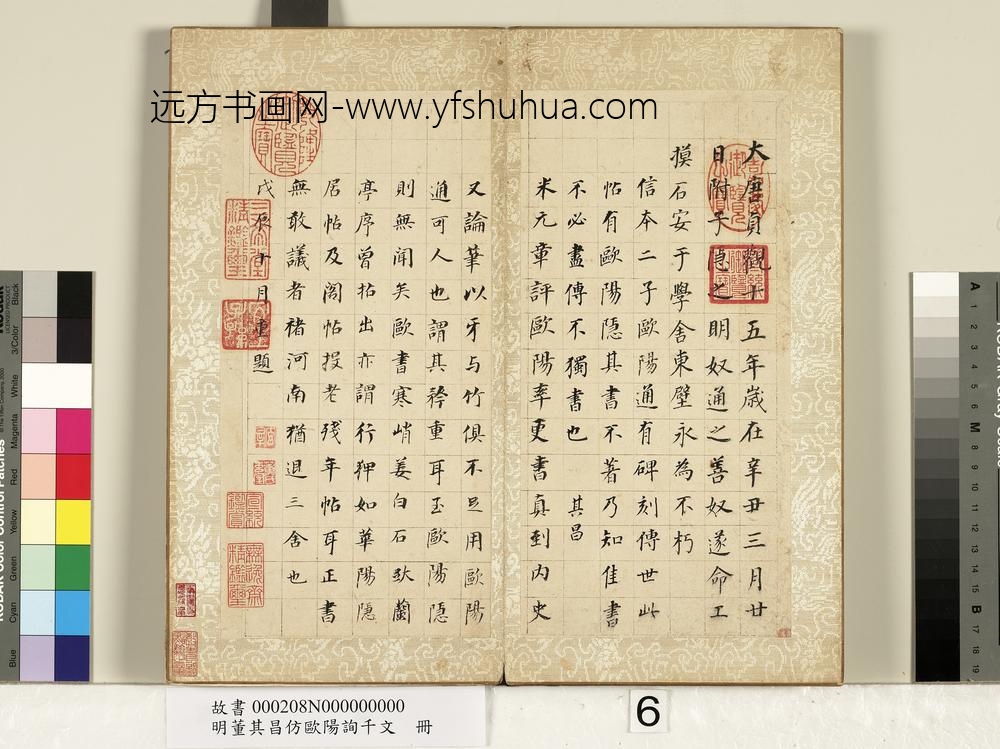 远方书画网-www.yfshuhua.com
大唐貞觀十五年歲在辛丑三月廿
日附子隱之明奴通之善奴遂命工
摸石安于學舍東壁永為不朽
信本二子歐陽通有碑刻傳世此
帖有歐陽隱其書不著乃知佳書
不必盡傳不獨書也 其昌
米元章評歐陽率更書真到內史
又論筆以牙与竹俱不足用歐陽
通可人也謂其矜重耳玉歐陽隱
則無聞矣歐書寒峭姜白石跋蘭
亭序曾拈出亦謂行狎如華陽隱
居帖及閣帖投老殘年帖耳正書
無敢議者褚河南猶退三舍也
戊辰十月重題
故書 000208N000000000
明董其昌仿歐陽詢千文 冊
6
Black
3/Color
White
Magenta
Red
Yellow
Green
Cyan
Blue
A 1 2 3 4 5 6 M 8 9 10 11 12 13 14 15 B 17 18 19